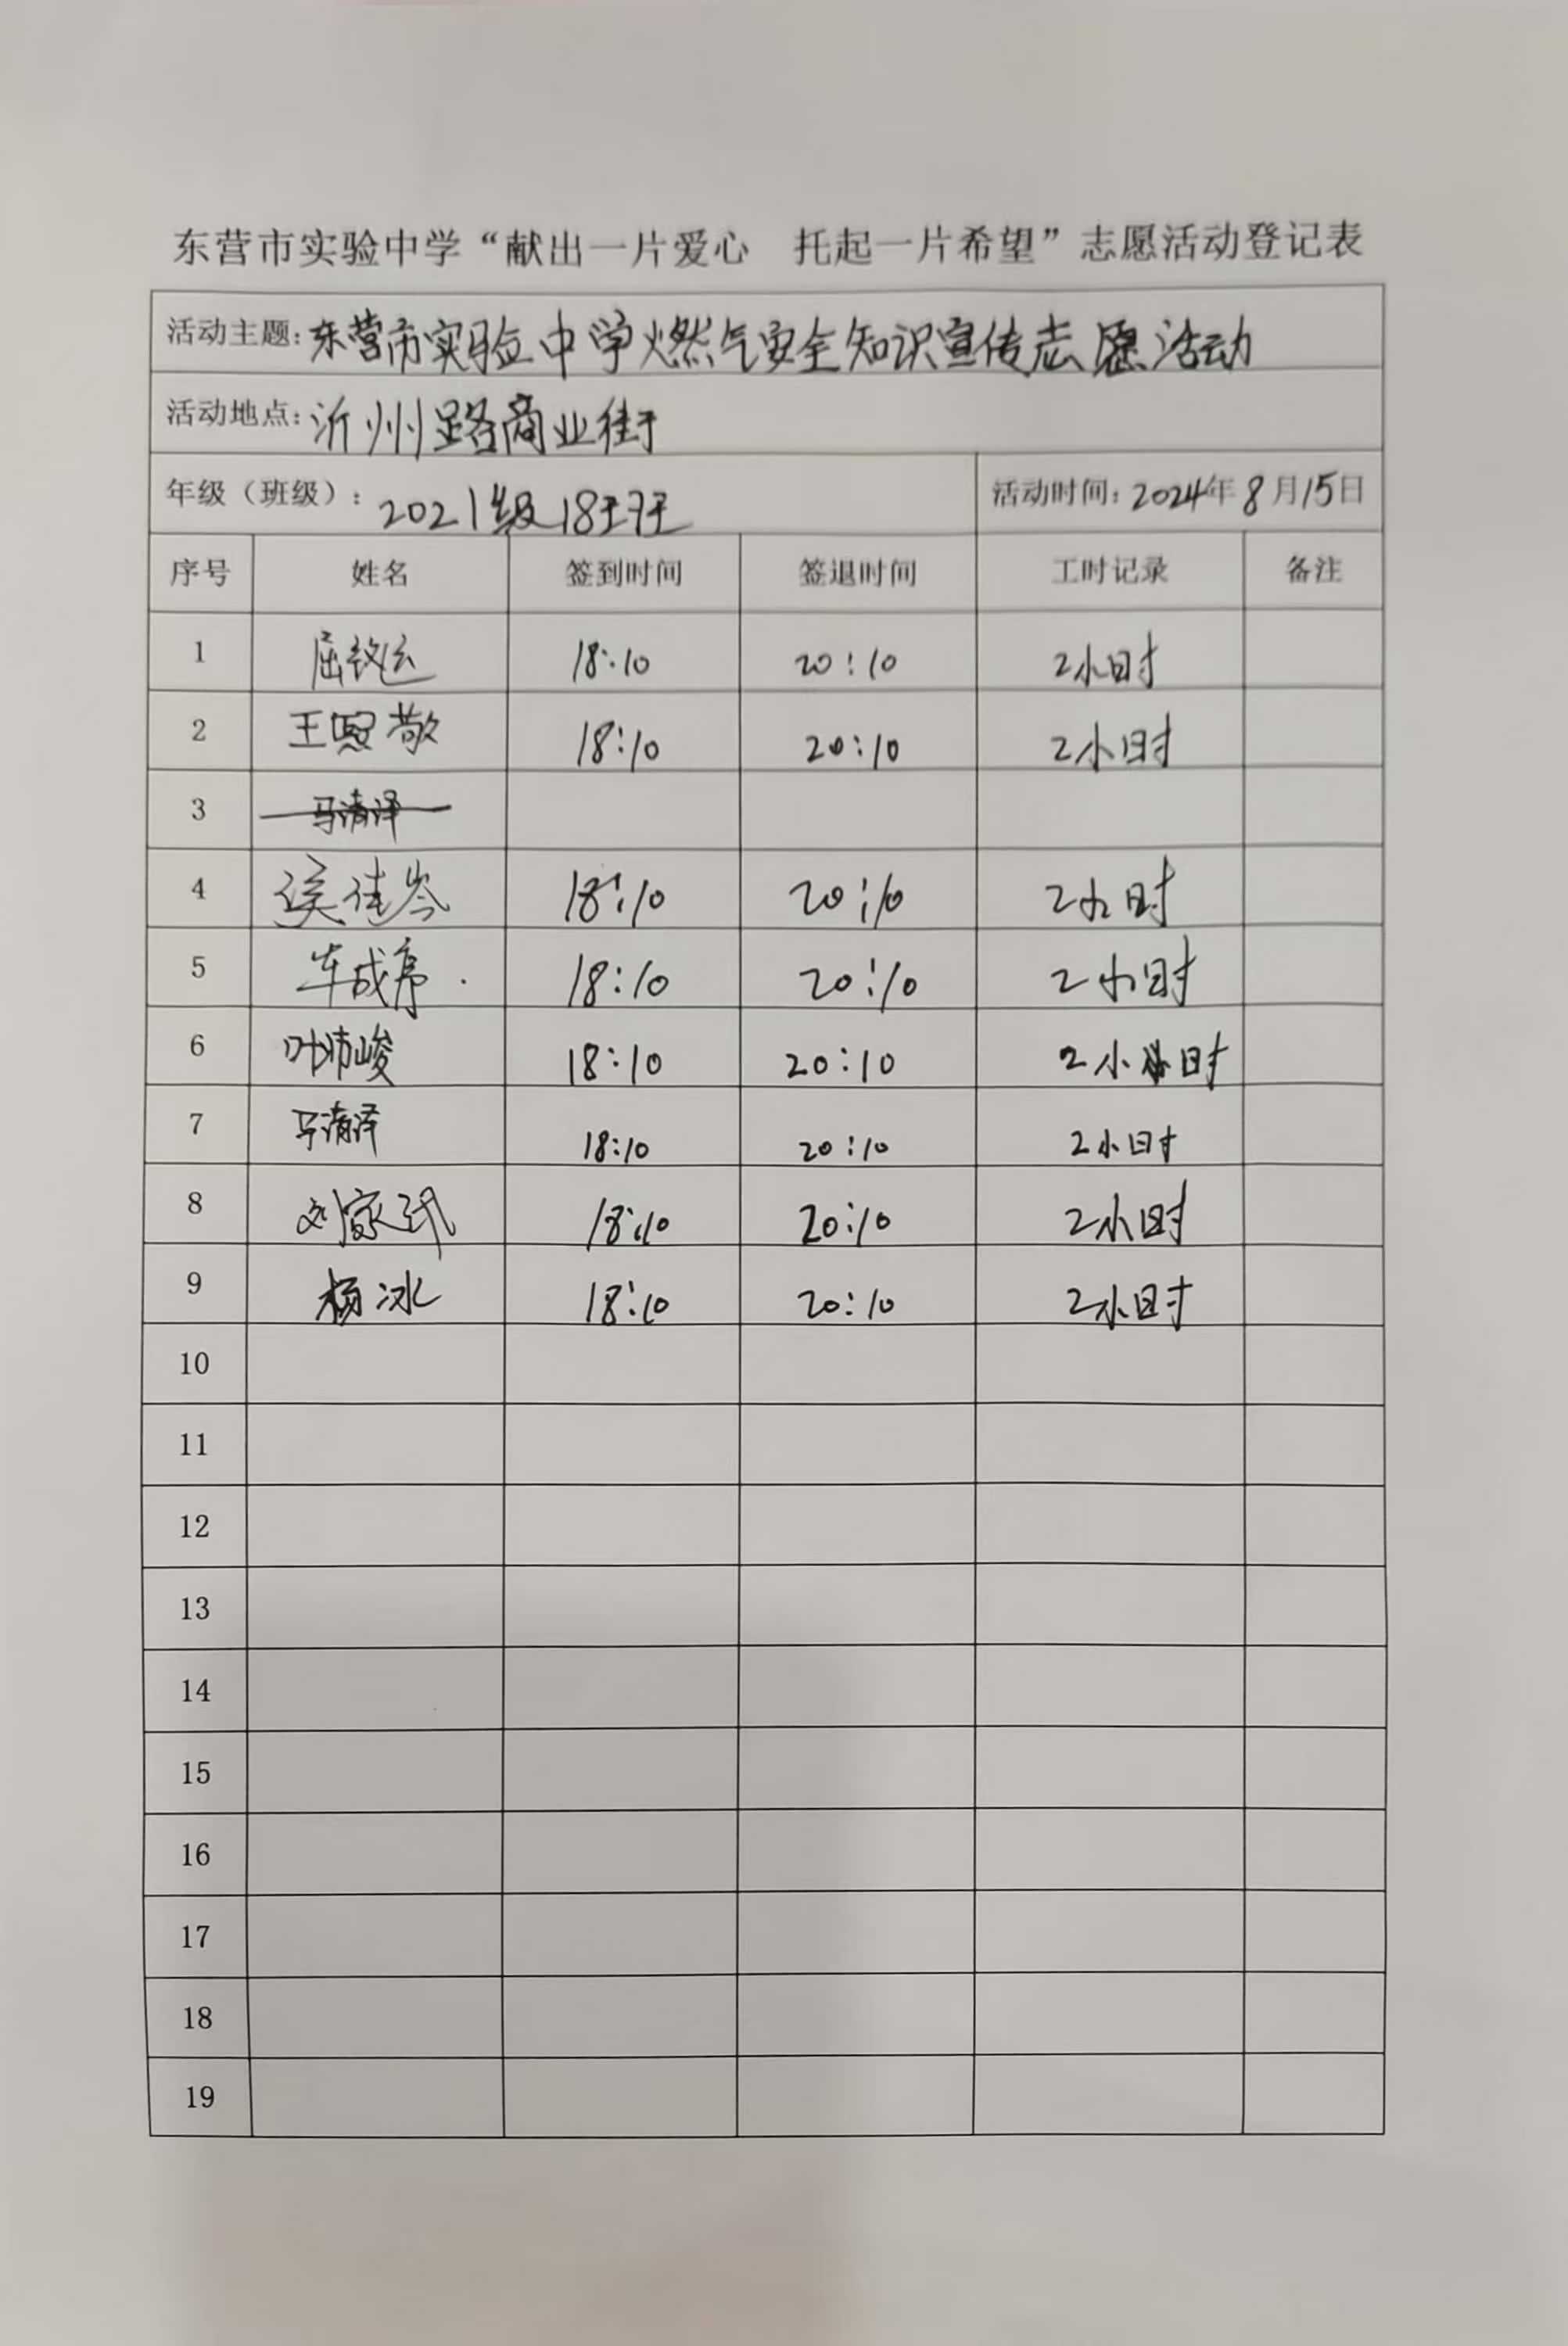 东营市实验中学“献出一片爱心 托起一片希望”志愿活动登记表
活动主题:东营市实验中学燃气安全知识宣传志愿活动
活动地点:沂州路商业街
年级（班级）:2021级18班 活动时间:2024年8月15日
序号 姓名 签到时间 签退时间 工时记录 备注
1 18:10 20:10 2小时
2 王 敬 18:10 20:10 2小时
3 马清泽
4 侯佳岑 18:10 20:10 2小时
5 车成序 18:10 20:10 2小时
6 叶沛峻 18:10 20:10 2小时
7 马清泽 18:10 20:10 2小时
8 刘家讯 18:10 20:10 2小时
9 杨冰 18:10 20:10 2小时
10
11
12
13
14
15
16
17
18
19